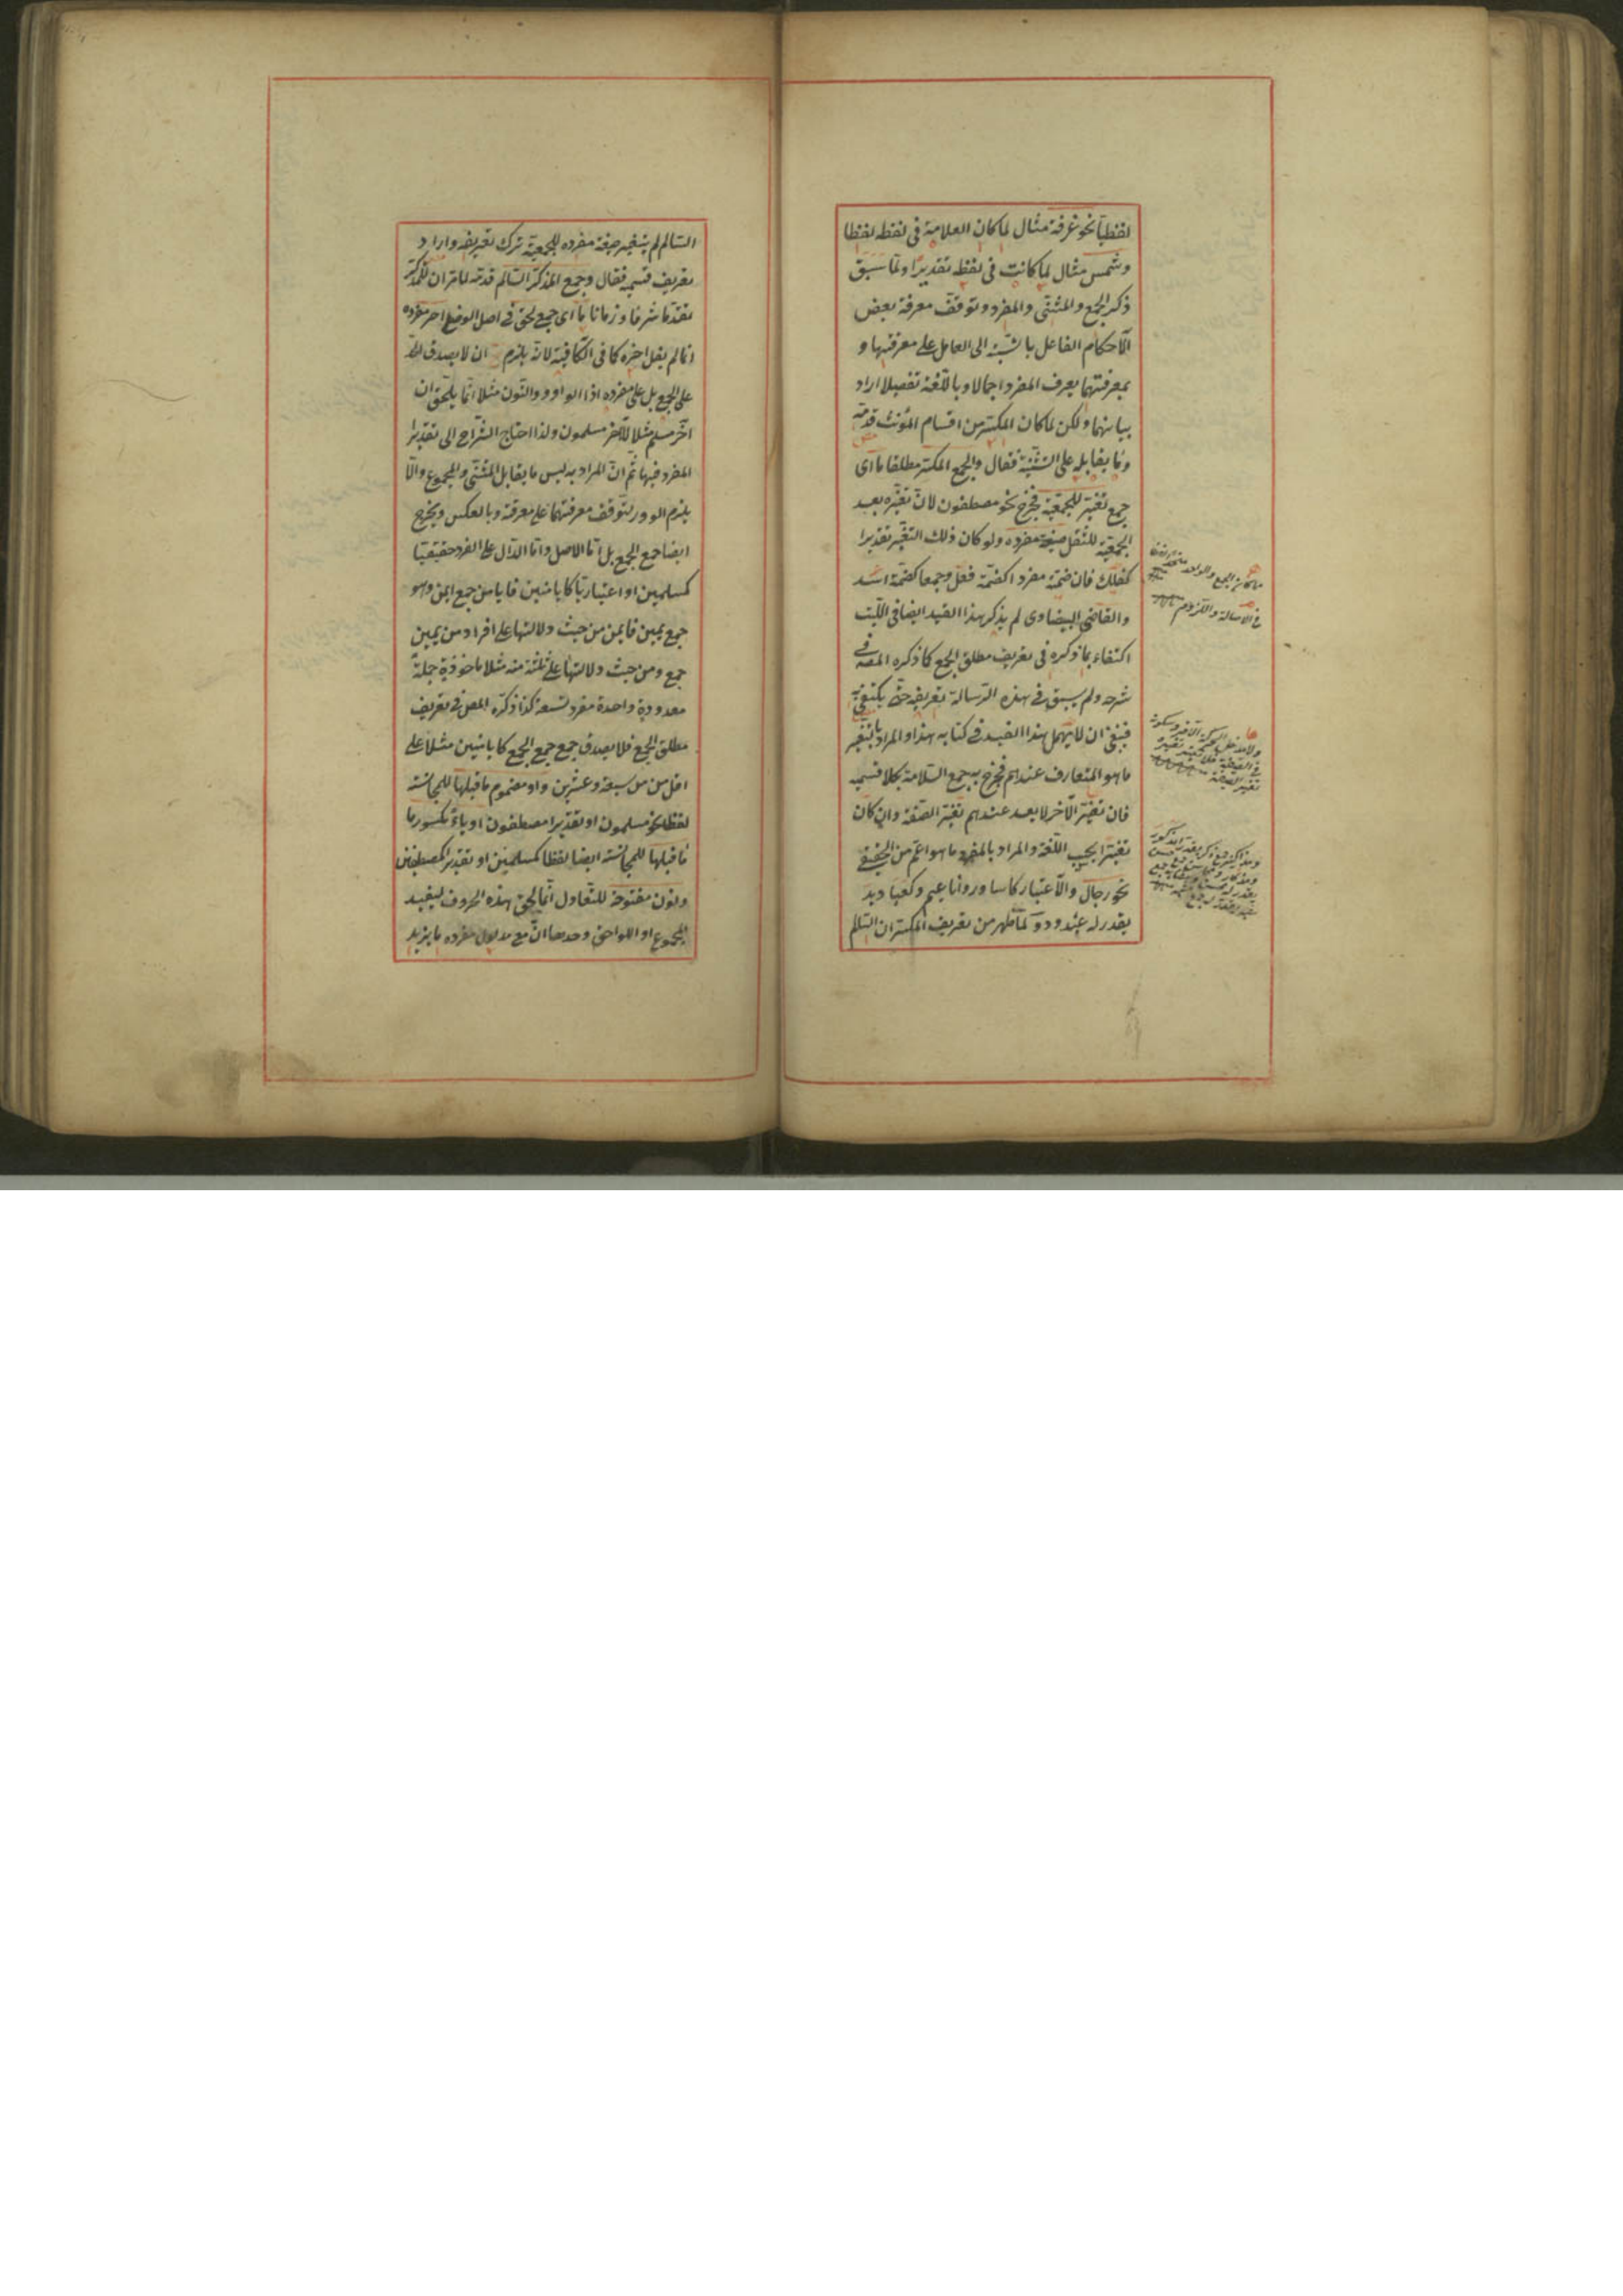 لفظيا نحو غرفة مثال لما كان العلامة فى لفظه لفظا
وشمس مثال لما كانت فى لفظه تقديرا ولما سبق
ذكر الجمع والمثنى والمفرد وتوقف معرفة بعض
الاحكام الفاعل بالنسبة الى العامل على معرفتها و
بمعرفتهما يعرف المفرد اجمالا وباللغة تفصيلا اراد
بيانهما ولكن لما كان المكسر من اقسام المؤنث قدمه
وما يقابله على التثنية فقال والجمع المكسر مطلقا ما اى
جمع تغير للجمعية فخرج نحو مصطفون لان تغيره بعد
الجمعية للثقل صيغة مفرده ولو كان ذلك التغير تقديرا
كفلك فان ضمته مفردا كضمة قفل وجمعا كضمة اسد
والقاضى البيضاوى لم يذكر هذا القيد ايضا فى اللب
اكتفاء بما ذكره فى تعريف مطلق الجمع كما ذكره المص فى
شرحه ولم يسبق فى هذه الرسالة تعريفه حتى يكتفى به
فينبغى ان لا يهمل هذا القيد فى كتابه هذا والمراد بالتغير
ما هو المتعارف عندهم فخرج به جمع السلامة بكلا قسميه
فان تغير الآخر لا يعد عندهم تغير الصيغة وان كان
تغيرا بحسب اللغة والمراد بالمفرد ما هو اعم من الحقيقى
نحو رجال والاعتبار كاساور واناعيم وكعباديد
يقدر له عبدود ولما ظهر من تعريف المكسر ان السالم
السالم لم يتغير صيغة مفرده للجمعية ترك تعريفه واراد
تعريف قسميه فقال وجمع المذكر السالم قدمه لما مر ان للمذكر
تقدما شرفا وزمانا ما اى جمع لحق فى اصل الوضع اخر مفرده
انما لم يقل اخره كما فى الكافية لانه يلزم ان لا يصدق
على الجمع بل على مفرده اذ الواو والنون مثلا انما يلحق ان
آخر مسلم مثلا لا آخر مسلمون ولذا احتاج الشراح الى تقدير
المفرد فيها ثم ان المراد به ليس ما يقابل المثنى والمجموع والا
يلزم الدور لتوقف معرفتهما على معرفته وبالعكس ويخرج
ايضا جمع الجمع بل اما الاصل واما الدال على الفرد حقيقيا
كمسلمين او اعتباريا كايامنين فايامن جمع ايمن وهو
جمع يمين فايمن من حيث دلالتها على افراد من يمين
جمع ومن حيث دلالتها على ثلثة منه مثلا ماخوذية جملة
معدودة واحدة مفرد لتسعة كذا ذكره المص فى تعريف
مطلق الجمع فلا يصدق جمع جمع الجمع كايامنين مثلا على
اقل من سبعة وعشرين واو مضموم ما قبلها للمجانسة
لفظا نحو مسلمون او تقديرا مصطفون او ياء مكسور ما
ما قبلها للمجانسة ايضا لفظا كمسلمين او تقديرا كمصطفين
ونون مفتوحة للتعادل انما لحق هذه الحروف ليفيد
المجموع او اللواحق وحدها ان مع مدلول مفرده ما يزيد